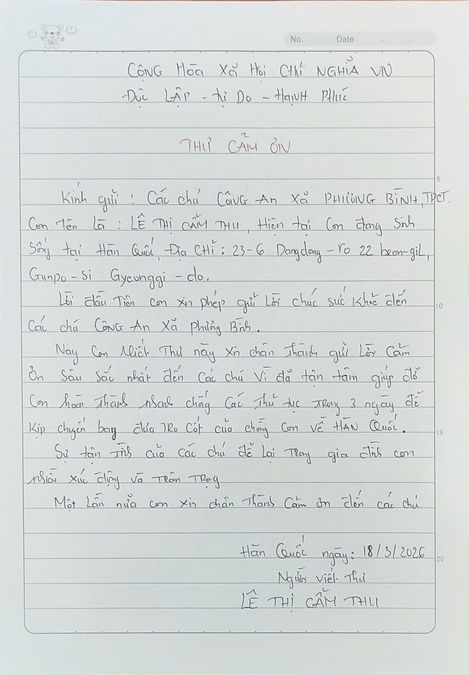 No. Date
CỘNG HÒA XÃ HỘI CHỈ NGHĨA VN
ĐỘC LẬP - Tự DO - HẠNH PHÚC
THƯ CẢM ƠN
Kính gửi : Các chú CÔNG AN XÃ PHƯƠNG BÌNH, TPCT.
Con tên Là : LÊ THỊ CẨM THU, Hiện tại Con đang Sinh
Sống tại Hàn Quốc, Địa Chỉ : 23-6 Dangdong-ro 22 beon-gil,
Gunpo-si Gyeonggi-do.
Lời đầu Tiên con xin phép gửi Lời chúc sức khỏe đến
Các chú CÔNG AN Xã Phương Bình.
Nay Con Viết Thư này xin chân Thành gửi Lời Cảm
Ơn Sâu Sắc nhất đến Các chú Vì đã tận tâm giúp đỡ
Con hoàn Thành nhanh chóng Các Thủ tục Trong 3 ngày để
Kịp chuyến bay đưa TRO CỐT của chồng Con về HÀN QUỐC.
Sự tận Tình của Các chú để Lại Trong gia đình con
nhiều xúc động và Trân Trọng
Một Lần nữa con xin chân Thành Cảm ơn đến các chú
Hàn Quốc ngày: 18/3/2026
Người viết Thư
LÊ THỊ CẨM THU
5
10
15
20